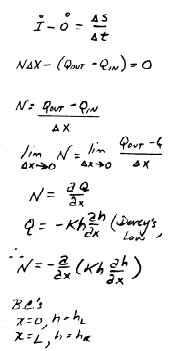 İ - Ȯ = Δs/Δt
NΔX - (Qout - QIN) = 0
N = (Qout - QIN)/ΔX
lim Δx→0 N = lim Δx→0 (Qout - Q/ΔX
N = ∂Q/∂x
Q = -Kh ∂h/∂x (Darcy's Law
∴ N = -∂/∂x (Kh ∂h/∂x)
B.C.'s
x=0, h=hL
x=L, h=hR